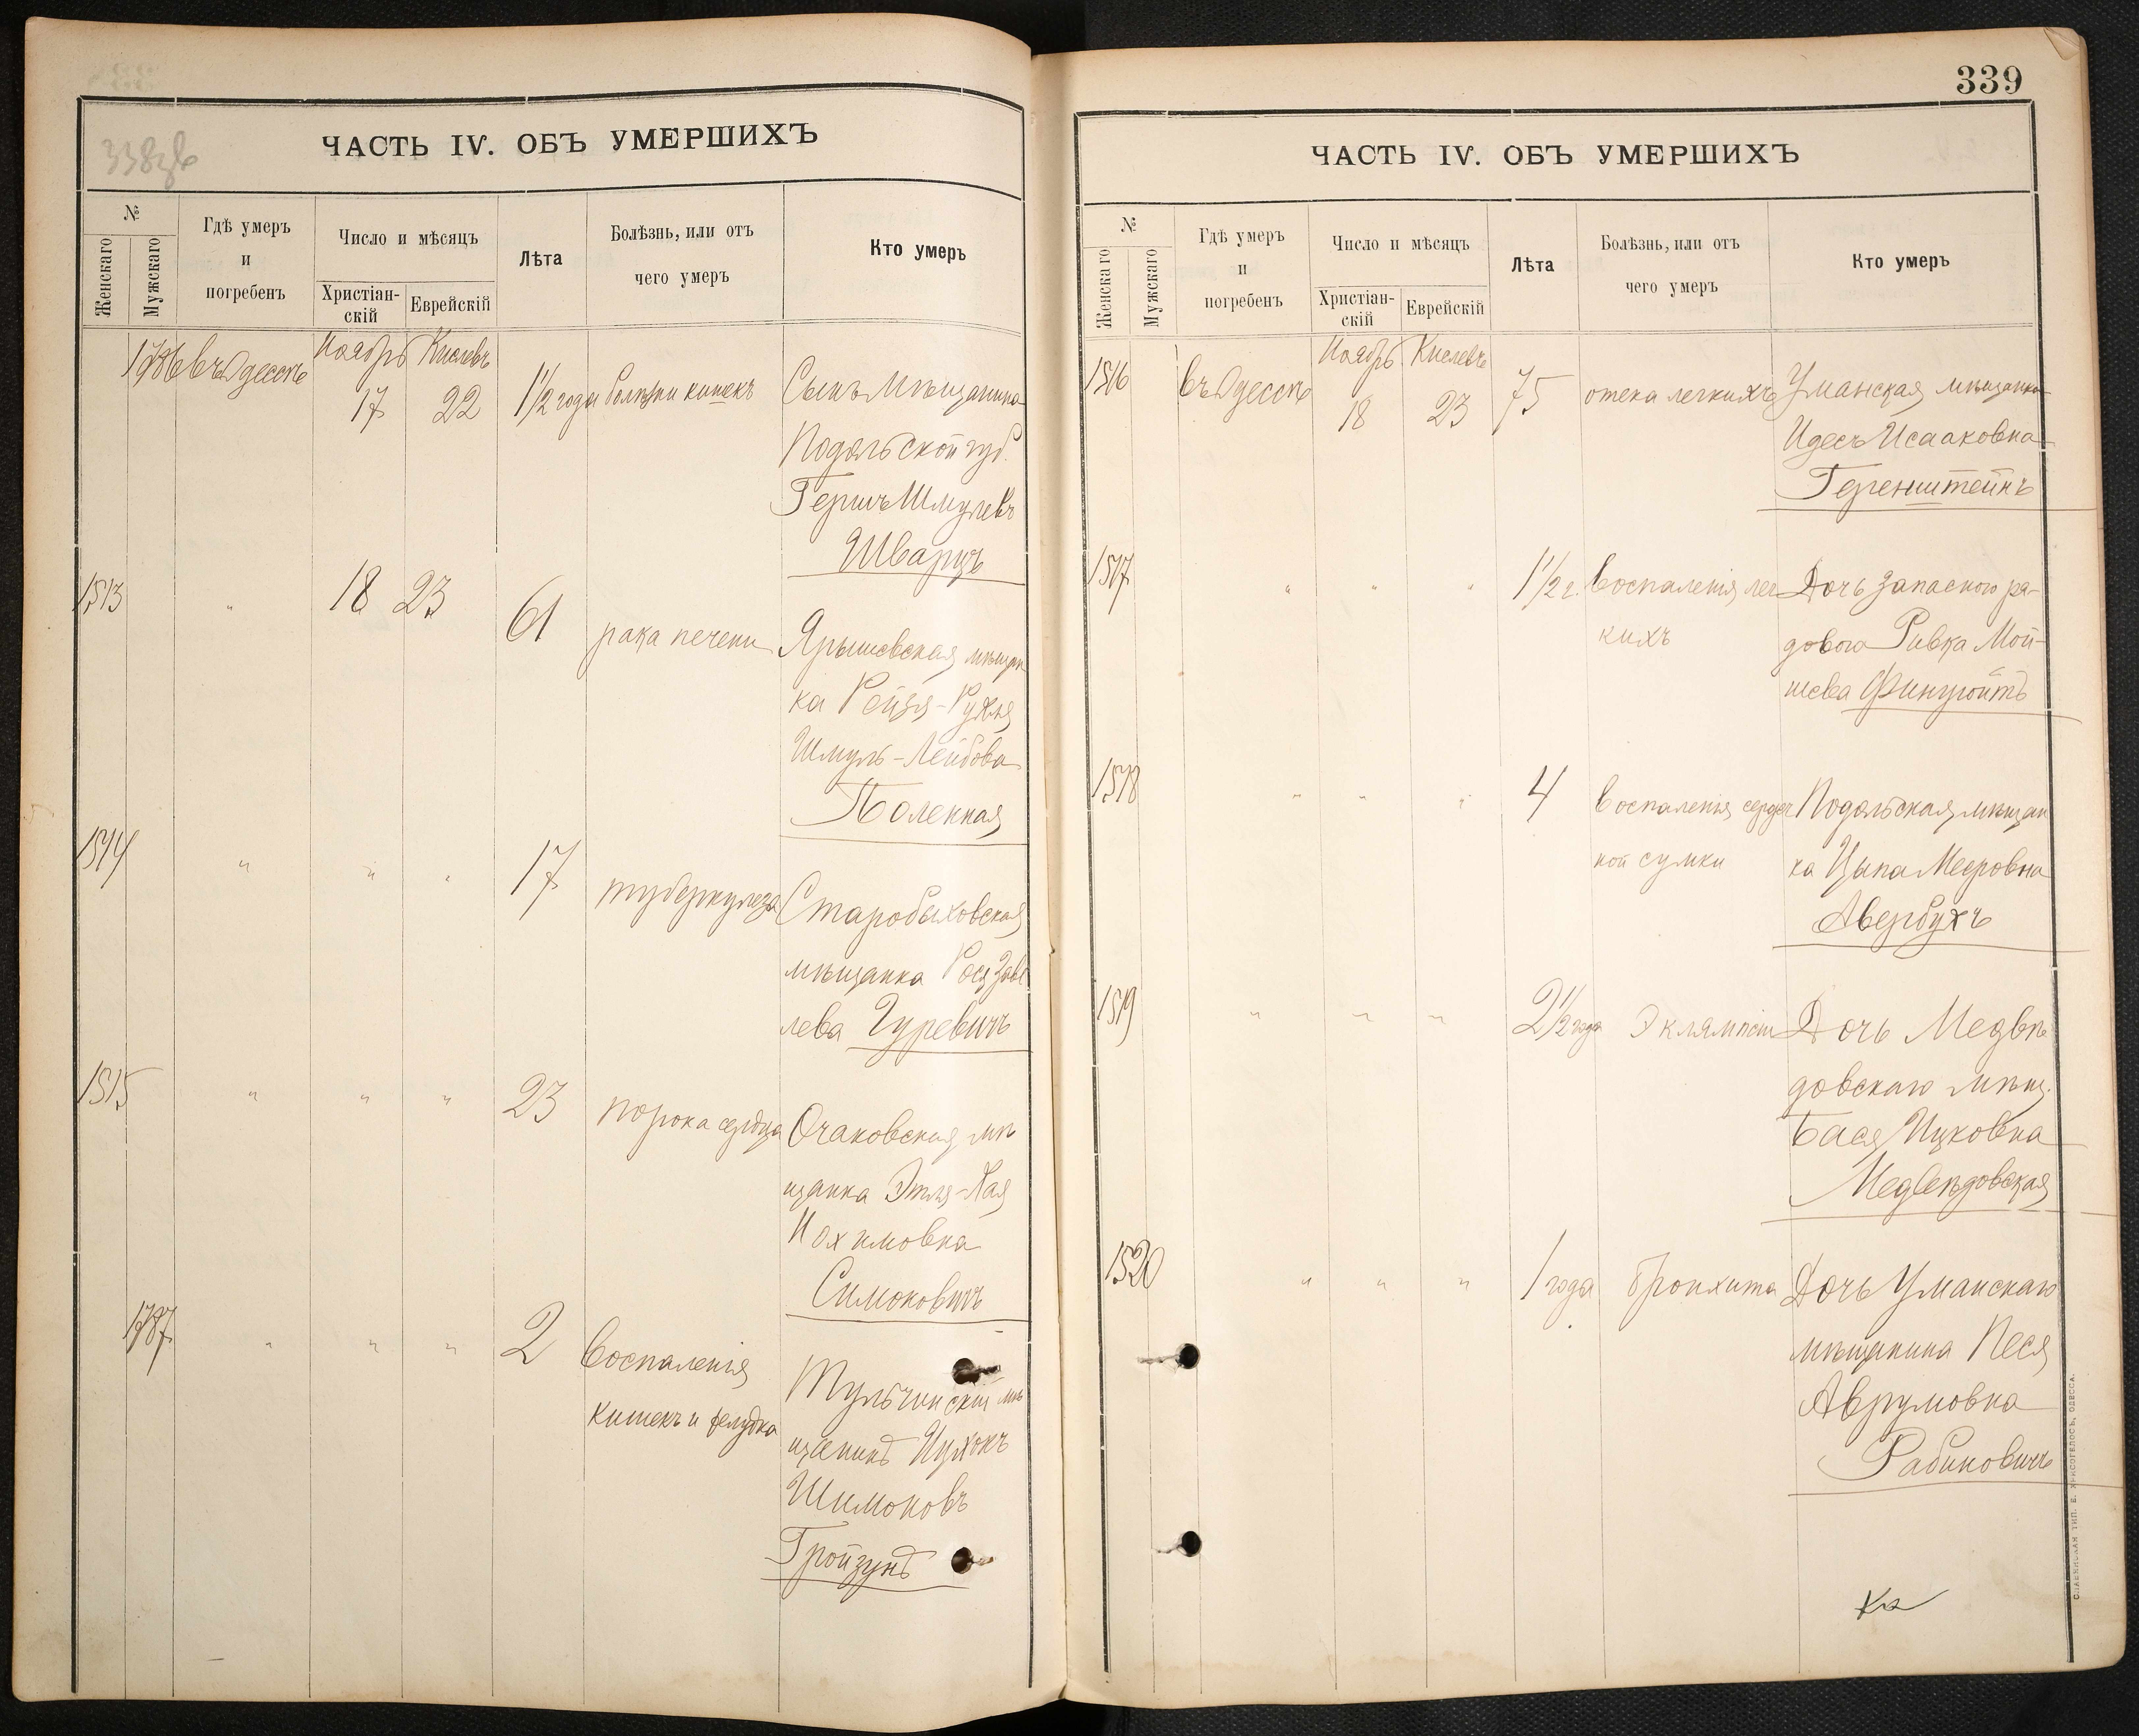 338об
ЧАСТЬ IV. ОБЪ УМЕРШИХЪ
№
Женскаго
Мужскаго
Гдѣ умеръ
и
погребенъ
Число и мѣсяцъ
Христіан-
скій
Еврейскій
Лѣта
Болѣзнь, или отъ
чего умеръ
Кто умеръ
1786 въ Одессѣ Ноябрь 17 Кислевъ 22 1½ года болѣзни кишекъ Сынъ мѣщанина
Подольской губ.
Гершъ Шмулевъ
Шварцъ
1513 " 18 23 61 рака печени Ярышевская мѣщан
ка Рейзя-Рухля
Шмуль-Лейбова
Поленная
1514 " " " 17 туберкулеза Старобыховская
мѣщанка Рося Завe
лева Гуревичъ
1515 " " " 23 порока сердца Очаковская мѣ
щанка Этля-Хая
Нохимовна
Симоновичъ
1787 " " " 2 воспаленія Тульчинскій мѣ
кишекъ и желудка щанинъ Ицхокъ
Шимоновъ
Гройзунд
339
ЧАСТЬ IV. ОБЪ УМЕРШИХЪ
№
Женскаго
Мужскаго
Гдѣ умеръ
и
погребенъ
Число и мѣсяцъ
Христіан-
скій
Еврейскій
Лѣта
Болѣзнь, или отъ
чего умеръ
Кто умеръ
1516 въ Одессѣ Ноябрь 18 Кислевъ 23 75 отека легкихъ Уманская мѣщанка
Идесъ Исааковна
Геренштейнъ
1517 " " " 1½ г. воспаленія лег Дочь запаснаго ря-
кихъ довога Ривка Мой-
шева Финугойтъ
1518 " " " 4 воспаленія сердеч Подольская мѣщан
ной сумки ка Цыпа Мееровна
Авербухъ
1519 " " " 2½ года Эклямпсіи Дочь Медвѣ
довскаго мѣщ.
Бася Ицковна
Медвѣдовская
1520 " " " 1 года бронхита Дочь Уманскаго
мѣщанина Песя
Аврумовна
Рабиновичъ
СЛАВЯНСКАЯ ТИП. Е. ХРИСОГЕЛОСЪ, ОДЕССА.